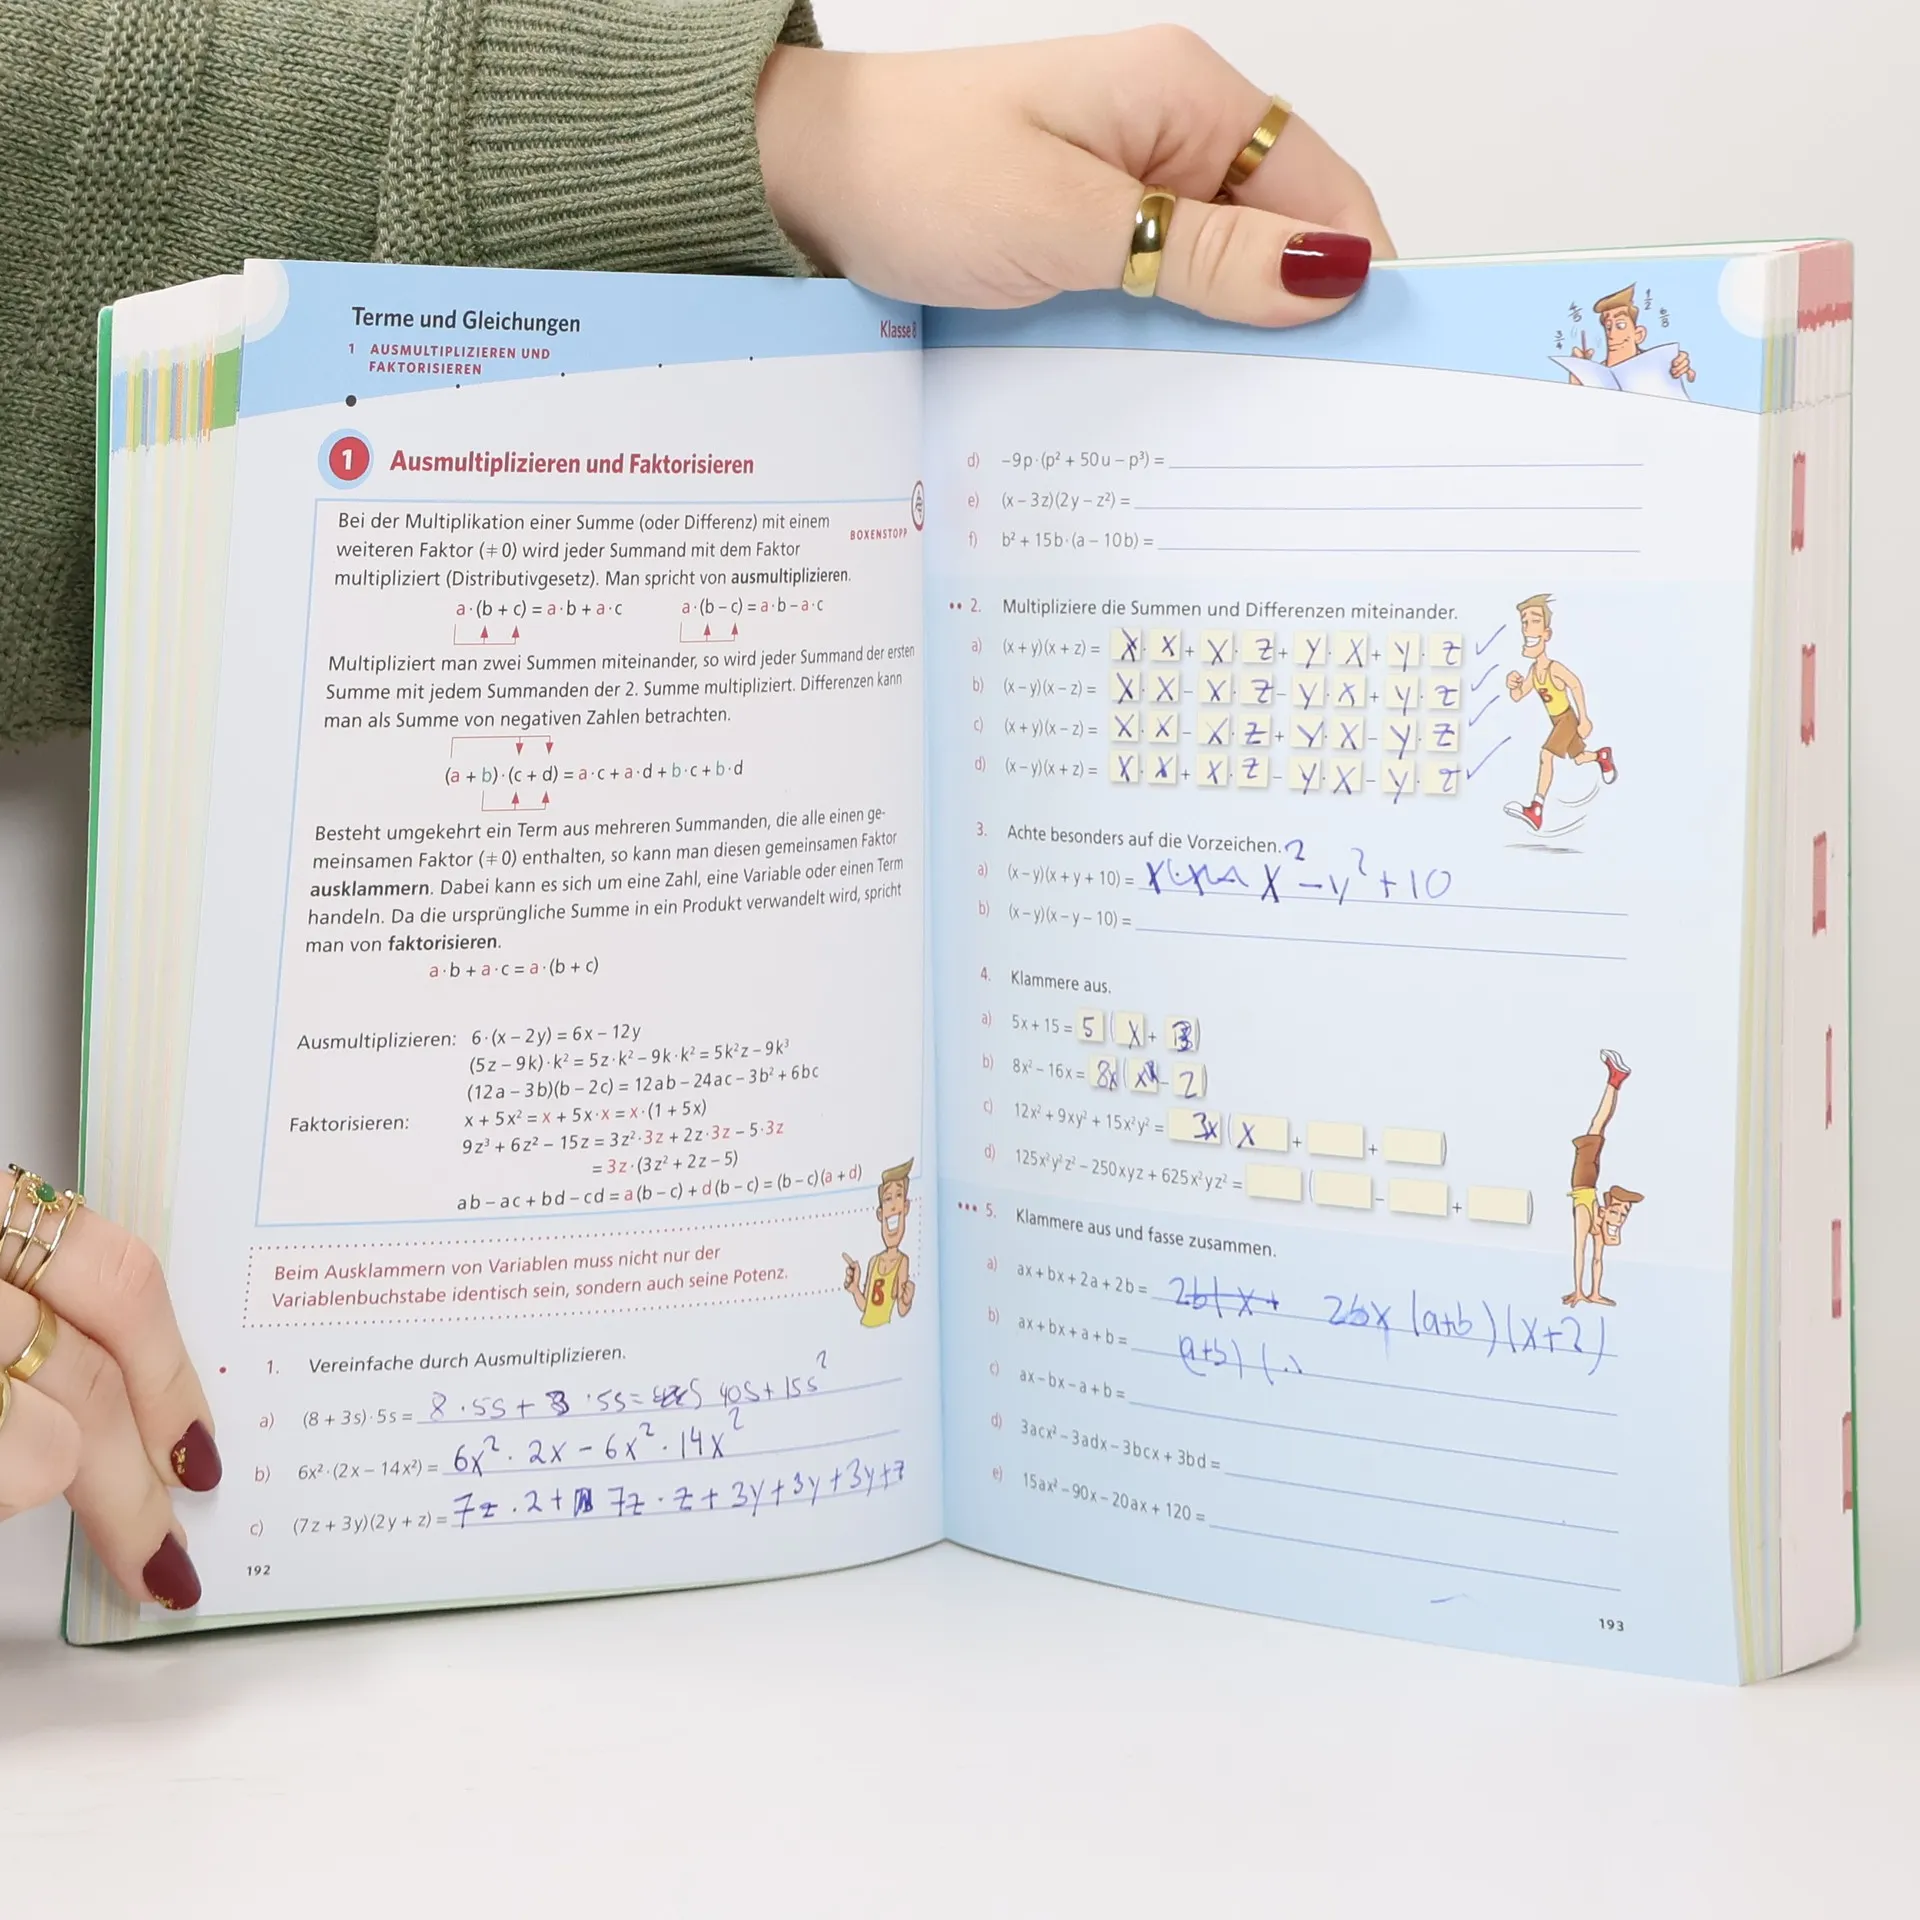 Terme und Gleichungen
Klasse 8
1 AUSMULTIPLIZIEREN UND
FAKTORISIEREN
1 Ausmultiplizieren und Faktorisieren
BOXENSTOPP
Bei der Multiplikation einer Summe (oder Differenz) mit einem
weiteren Faktor (≠ 0) wird jeder Summand mit dem Faktor
multipliziert (Distributivgesetz). Man spricht von ausmultiplizieren.
a·(b + c) = a·b + a·c a·(b – c) = a·b – a·c
Multipliziert man zwei Summen miteinander, so wird jeder Summand der ersten
Summe mit jedem Summanden der 2. Summe multipliziert. Differenzen kann
man als Summe von negativen Zahlen betrachten.
(a + b)·(c + d) = a·c + a·d + b·c + b·d
Besteht umgekehrt ein Term aus mehreren Summanden, die alle einen ge-
meinsamen Faktor (≠ 0) enthalten, so kann man diesen gemeinsamen Faktor
ausklammern. Dabei kann es sich um eine Zahl, eine Variable oder einen Term
handeln. Da die ursprüngliche Summe in ein Produkt verwandelt wird, spricht
man von faktorisieren.
a·b + a·c = a·(b + c)
Ausmultiplizieren: 6·(x – 2y) = 6x – 12y
(5z – 9k)·k² = 5z·k² – 9k·k² = 5k²z – 9k³
(12a – 3b)(b – 2c) = 12ab – 24ac – 3b² + 6bc
Faktorisieren: x + 5x² = x + 5x·x = x·(1 + 5x)
9z³ + 6z² – 15z = 3z²·3z + 2z·3z – 5·3z
= 3z·(3z² + 2z – 5)
ab – ac + bd – cd = a(b – c) + d(b – c) = (b – c)(a + d)
Beim Ausklammern von Variablen muss nicht nur der
Variablenbuchstabe identisch sein, sondern auch seine Potenz.
B
1. Vereinfache durch Ausmultiplizieren.
a) (8 + 3s)·5s = 8 · 5s + 3 · 5s = 40s + 15s²
b) 6x²·(2x – 14x²) = 6x² · 2x – 6x² · 14x²
c) (7z + 3y)(2y + z) = 7z · 2 + 7z · z + 3y + 3y + 3y + z
192
3/4 4/8 1/2 6/8
d) –9p·(p² + 50u – p³) =
e) (x – 3z)(2y – z²) =
f) b² + 15b·(a – 10b) =
2. Multipliziere die Summen und Differenzen miteinander.
a) (x + y)(x + z) = x · x + x · z + y · x + y · z ✓
b) (x – y)(x – z) = x · x – x · z – y · x + y · z ✓
c) (x + y)(x – z) = x · x – x · z + y · x – y · z ✓
d) (x – y)(x + z) = x · x + x · z – y · x – y · z ✓
B
3. Achte besonders auf die Vorzeichen.
a) (x – y)(x + y + 10) = x² – y² + 10
b) (x – y)(x – y – 10) =
4. Klammere aus.
a) 5x + 15 = 5 ( x + 3 )
b) 8x² – 16x = 8x ( x – 2 )
c) 12x² + 9xy² + 15x²y² = 3x ( x + + )
d) 125x²y²z² – 250xyz + 625x²yz² = ( – + )
5. Klammere aus und fasse zusammen.
a) ax + bx + 2a + 2b = 2b(x+ 2bx (a+b)(x+2)
b) ax + bx + a + b = (a+b) (
c) ax – bx – a + b =
d) 3acx² – 3adx – 3bcx + 3bd =
e) 15ax² – 90x – 20ax + 120 =
193